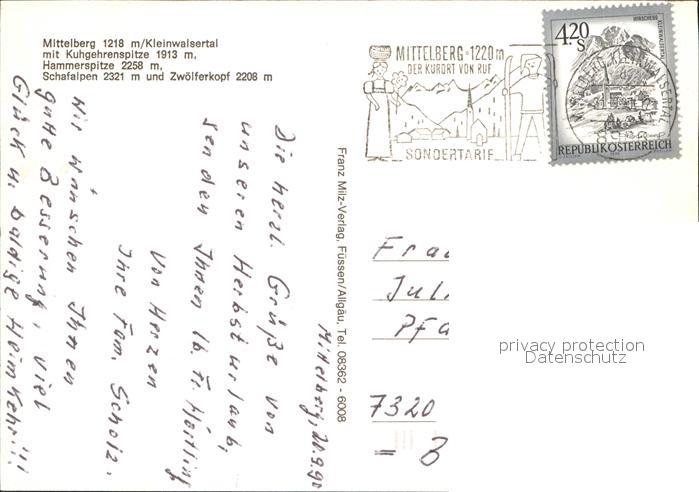 Mittelberg 1218 m/Kleinwalsertal
mit Kuhgehrenspitze 1913 m,
Hammerspitze 2258 m,
Schafalpen 2321 m und Zwölferkopf 2208 m
MITTELBERG · 1220 m
DER KURORT VON RUF
SONDERTARIF
4.20
S
HIRSCHEGG
KLEINWALSERTAL
REPUBLIK ÖSTERREICH
MITTELBERG, KLEINWALSERTAL
Franz Milz-Verlag, Füssen/Allgäu, Tel. 08362 - 6008
Mittelberg, 20.9.90
Die herzl. Grüße von
unseren Herbsturlaub,
senden Ihnen lb. Fr. Härtling
von Herzen
Ihre Fam. Scholz.
Wir wünschen Ihnen
gute Besserung, viel
Glück u. baldige Heimkehr!!!
Frau
Jul.
Pfa
7320
= B
privacy protection
Datenschutz